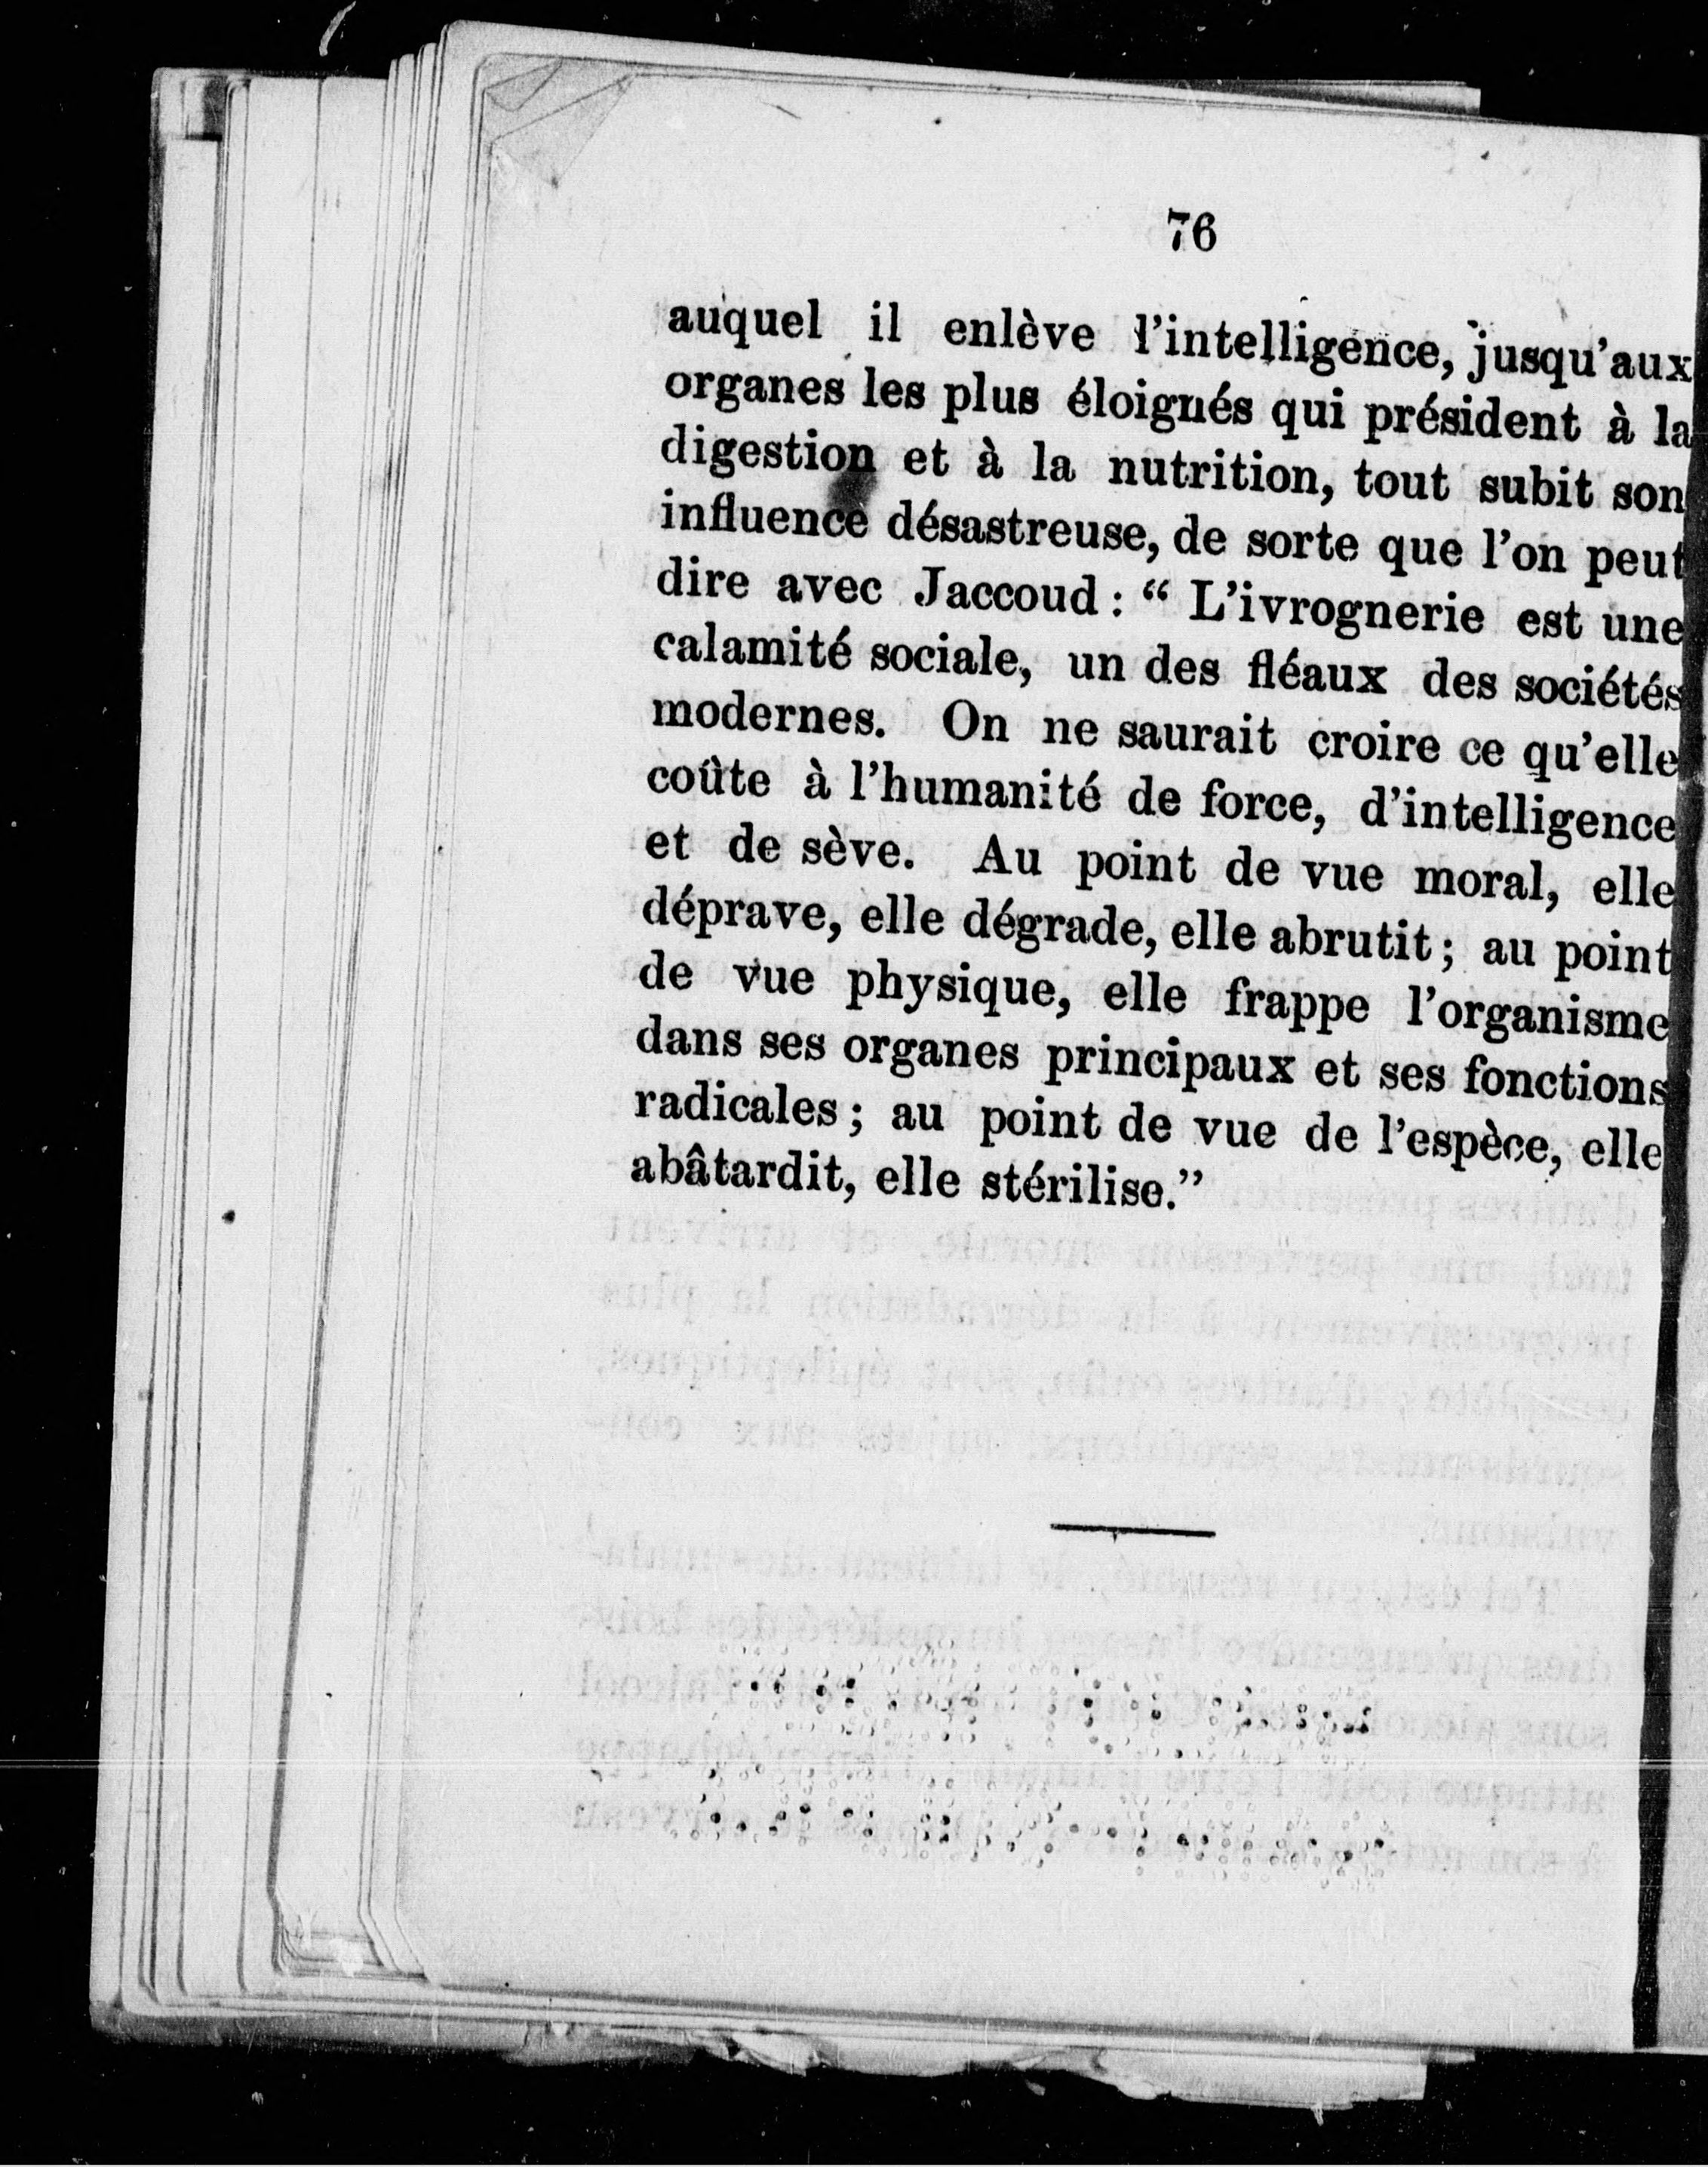 76
auquel il enlève l'intelligence, jusqu'aux
organes les plus éloignés qui président à la
digestion et à la nutrition, tout subit son
influence désastreuse, de sorte que l'on peut
dire avec Jaccoud : “ L'ivrognerie est une
calamité sociale, un des fléaux des sociétés
modernes. On ne saurait croire ce qu'elle
coûte à l'humanité de force, d'intelligence
et de sève. Au point de vue moral, elle
déprave, elle dégrade, elle abrutit ; au point
de vue physique, elle frappe l'organisme
dans ses organes principaux et ses fonctions
radicales ; au point de vue de l'espèce, elle
abâtardit, elle stérilise.”